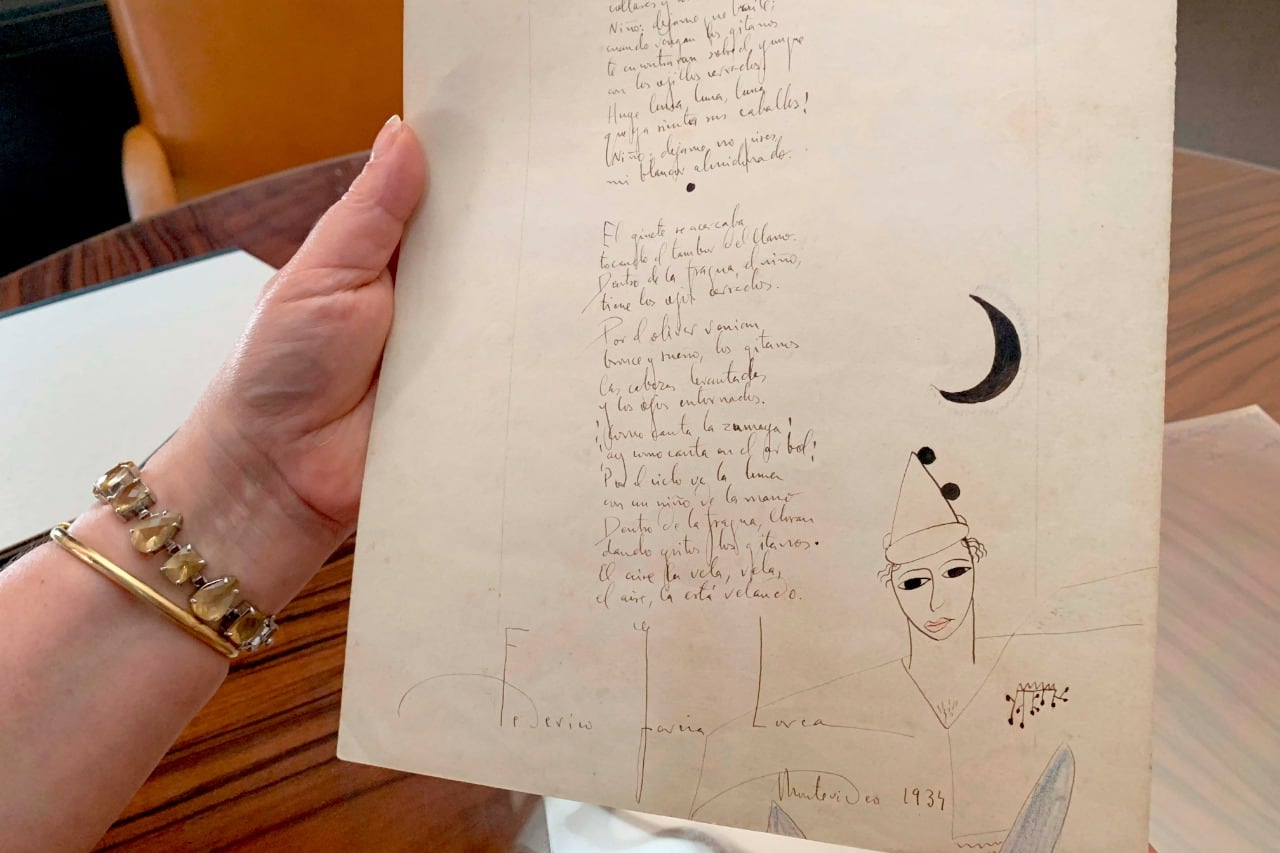 collares y
Niño: dejame que baile;
cuando vengan los gitanos
te encontraran sobre el yunque
con los ojillos cerrados
Huye luna, luna, luna
que ya siento sus caballos!
Niño; dejame no pises,
mi blancor almidonado.
El ginete se acercaba
tocando el tambor del llano.
Dentro de la fragua, el niño,
tiene los ojos cerrados.
Por el olivar venian
bronce y sueño, los gitanos
las cabezas levantadas
y los ojos entornados.
¡Como canta la zumaya!
¡ay como canta en el árbol!
Por el cielo va la luna
con un niño, de la mano
Dentro de la fragua, lloran
dando gritos los gitanos.
El aire la vela, vela,
el aire, la está velando.
Federico Garcia Lorca
Montevideo 1934